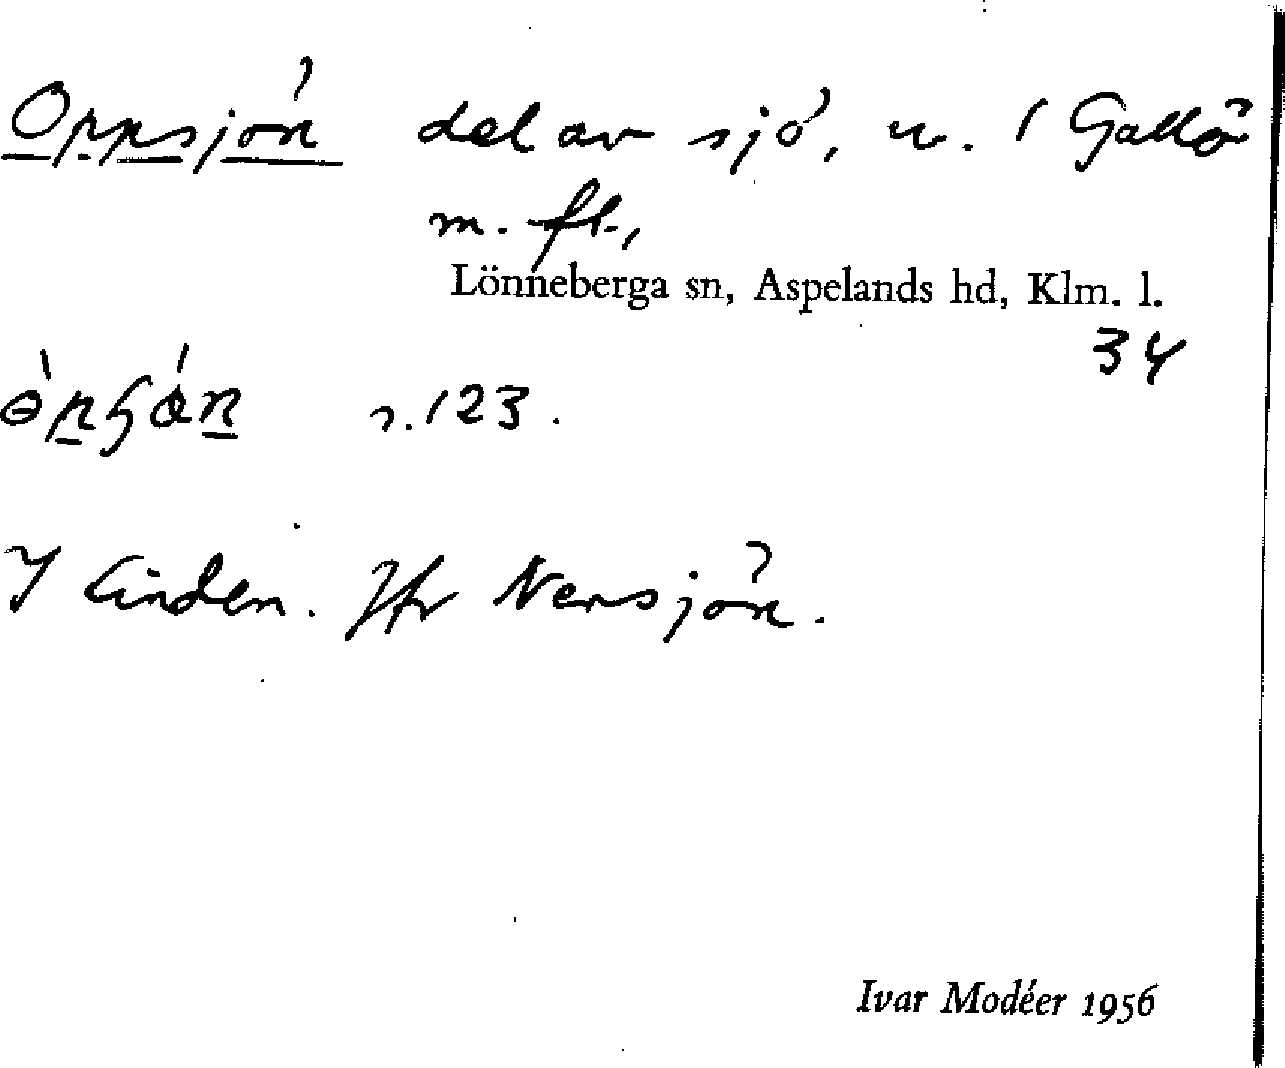 Oppsjön del av sjö, u. 1 Gallö
m. fl.,
Lönneberga sn, Aspelands hd, Klm. l.
34
s. 123.
I Linden. Jfr Nersjön.
Ivar Modéer 1956